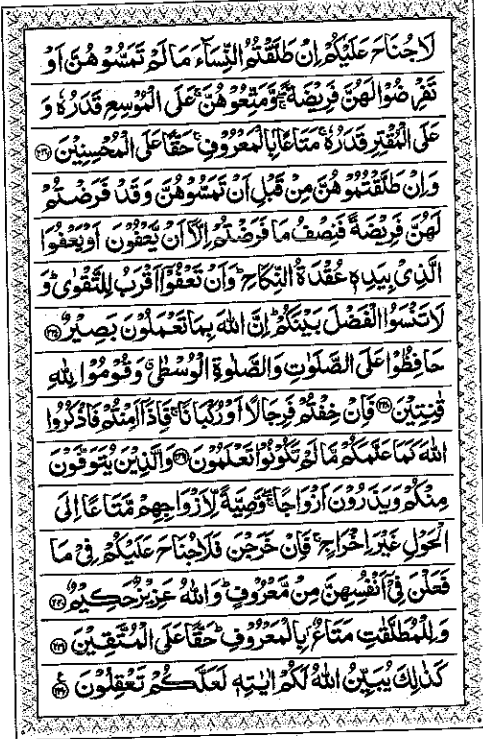 لَاجُنَاحَ عَلَيْكُمْ اِنْ طَلَّقْتُمُ النِّسَآءَ مَا لَمْ تَمَسُّوْهُنَّ اَوْ
تَفْرِضُوْا لَهُنَّ فَرِيْضَةً ۚ وَّمَتِّعُوْهُنَّ ۚ عَلَى الْمُوْسِعِ قَدَرُهٗ وَ
عَلَى الْمُقْتِرِ قَدَرُهٗ ۚ مَتَاعًۢا بِالْمَعْرُوْفِ ۚ حَقًّا عَلَى الْمُحْسِنِيْنَ ﴿۲۳۶﴾
وَاِنْ طَلَّقْتُمُوْهُنَّ مِنْ قَبْلِ اَنْ تَمَسُّوْهُنَّ وَقَدْ فَرَضْتُمْ
لَهُنَّ فَرِيْضَةً فَنِصْفُ مَا فَرَضْتُمْ اِلَّاۤ اَنْ يَّعْفُوْنَ اَوْ يَعْفُوَا
الَّذِيْ بِيَدِهٖ عُقْدَةُ النِّكَاحِ ؕ وَاَنْ تَعْفُوْۤا اَقْرَبُ لِلتَّقْوٰى ؕ وَ
لَا تَنْسَوُا الْفَضْلَ بَيْنَكُمْ ؕ اِنَّ اللّٰهَ بِمَا تَعْمَلُوْنَ بَصِيْرٌ ﴿۲۳۷﴾
حَافِظُوْا عَلَى الصَّلَوٰتِ وَالصَّلٰوةِ الْوُسْطٰى ۗ وَقُوْمُوْا لِلّٰهِ
قٰنِتِيْنَ ﴿۲۳۸﴾ فَاِنْ خِفْتُمْ فَرِجَالًا اَوْ رُكْبَانًا ۚ فَاِذَاۤ اَمِنْتُمْ فَاذْكُرُوا
اللّٰهَ كَمَا عَلَّمَكُمْ مَّا لَمْ تَكُوْنُوْا تَعْلَمُوْنَ ﴿۲۳۹﴾ وَالَّذِيْنَ يُتَوَفَّوْنَ
مِنْكُمْ وَيَذَرُوْنَ اَزْوَاجًا ۖۚ وَّصِيَّةً لِّاَزْوَاجِهِمْ مَّتَاعًا اِلَى
الْحَوْلِ غَيْرَ اِخْرَاجٍ ۚ فَاِنْ خَرَجْنَ فَلَا جُنَاحَ عَلَيْكُمْ فِيْ مَا
فَعَلْنَ فِيْۤ اَنْفُسِهِنَّ مِنْ مَّعْرُوْفٍ ؕ وَاللّٰهُ عَزِيْزٌ حَكِيْمٌ ﴿۲۴۰﴾
وَلِلْمُطَلَّقٰتِ مَتَاعٌۢ بِالْمَعْرُوْفِ ؕ حَقًّا عَلَى الْمُتَّقِيْنَ ﴿۲۴۱﴾
كَذٰلِكَ يُبَيِّنُ اللّٰهُ لَكُمْ اٰيٰتِهٖ لَعَلَّكُمْ تَعْقِلُوْنَ ﴿۲۴۲﴾ ع